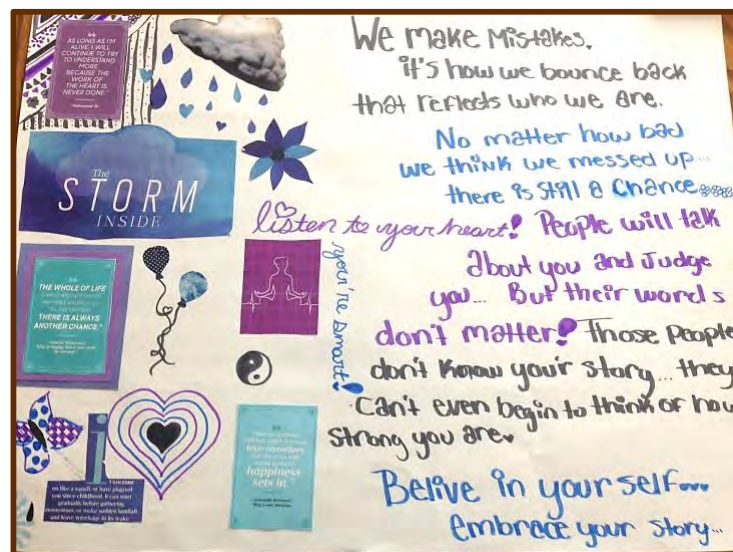 AS LONG AS I'M
ALIVE, I WILL
CONTINUE TO TRY
TO UNDERSTAND
MORE
BECAUSE THE
WORK OF
THE HEART IS
NEVER DONE."
The
STORM
INSIDE
THE WHOLE OF LIFE
THERE IS ALWAYS
ANOTHER CHANCE."
i
on like a squall, or have plagued
you since childhood. It can start
gradually before gathering
momentum, or make sudden landfall
and leave wreckage in its wake.
love ourselves
happiness
sets in.
We make Mistakes.
it's how we bounce back
that reflects who we are.
No matter how bad
we think we messed up...
there is still a Chance
listen to your heart! People will talk
about you and Judge
you... But their words
don't matter! Those People
don't know your story... they
Can't even begin to think of how
strong you are
you're smart!
Belive in your self...
embrace your story...